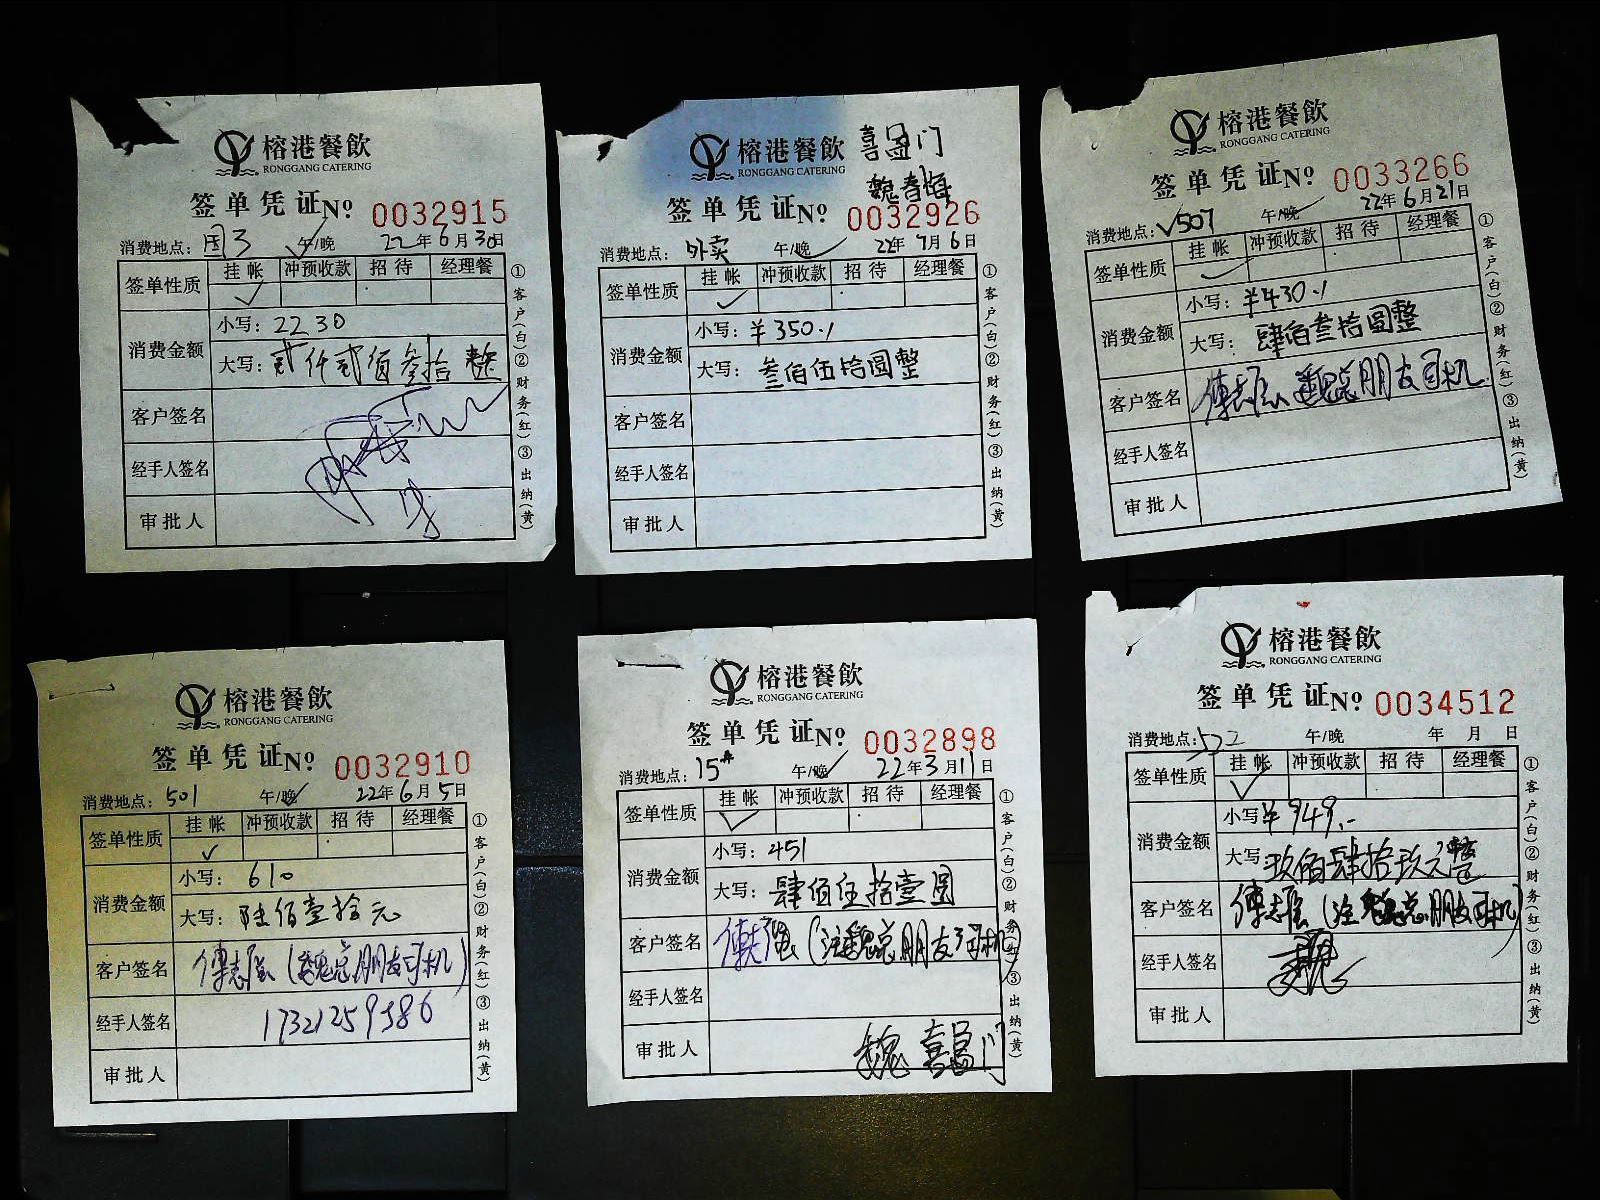 榕港餐飲
RONGGANG CATERING
签单凭证 Nº 0032915
消费地点：国3 午/晚 22年6月30日
签单性质 挂帐 冲预收款 招待 经理餐
✓
消费金额 小写：2230
大写：贰仟贰佰叁拾整
客户签名
经手人签名
审批人
①客户(白)②财务(红)③出纳(黄)
榕港餐飲 喜盈门
RONGGANG CATERING
魏春梅
签单凭证 Nº 0032926
消费地点：外卖 午/晚 22年7月6日
签单性质 挂帐 冲预收款 招待 经理餐
✓
消费金额 小写：¥350.1
大写：叁佰伍拾圆整
客户签名
经手人签名
审批人
①客户(白)②财务(红)③出纳(黄)
榕港餐飲
RONGGANG CATERING
签单凭证 Nº 0033266
消费地点：507 午/晚 22年6月21日
签单性质 挂帐 冲预收款 招待 经理餐
✓
消费金额 小写：¥430.1
大写：肆佰叁拾圆整
客户签名 傅志 魏总朋友司机
经手人签名
审批人
①客户(白)②财务(红)③出纳(黄)
榕港餐飲
RONGGANG CATERING
签单凭证 Nº 0032910
消费地点：501 午/晚 22年6月5日
签单性质 挂帐 冲预收款 招待 经理餐
✓
消费金额 小写：610
大写：陆佰壹拾元
客户签名 傅志 (魏总朋友司机)
经手人签名 17321259386
审批人
①客户(白)②财务(红)③出纳(黄)
榕港餐飲
RONGGANG CATERING
签单凭证 Nº 0032898
消费地点：15# 午/晚 22年3月11日
签单性质 挂帐 冲预收款 招待 经理餐
✓
消费金额 小写：451
大写：肆佰伍拾壹圆
客户签名 傅 (注魏总朋友司机)
经手人签名
审批人 魏 喜盈门
①客户(白)②财务(红)③出纳(黄)
榕港餐飲
RONGGANG CATERING
签单凭证 Nº 0034512
消费地点：522 午/晚 年 月 日
签单性质 挂帐 冲预收款 招待 经理餐
✓
消费金额 小写¥949.-
大写 玖佰肆拾玖元整
客户签名 傅志 (注魏总朋友司机)
经手人签名 魏
审批人
①客户(白)②财务(红)③出纳(黄)